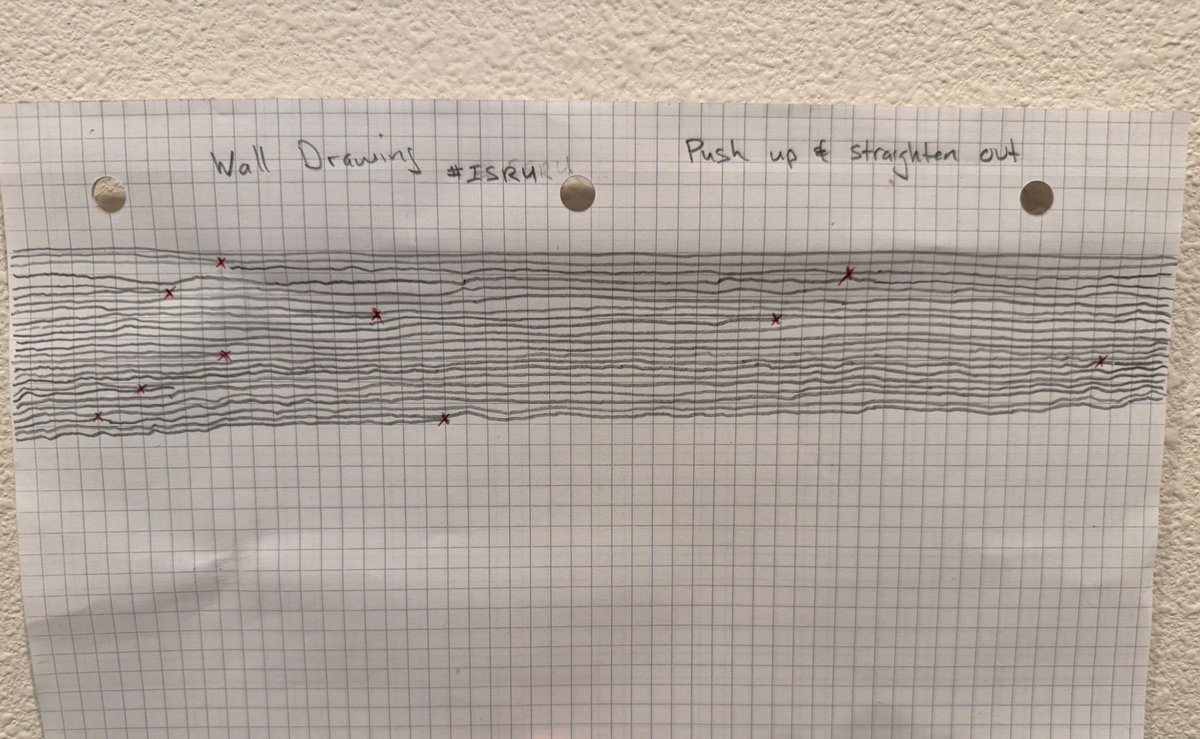 Wall Drawing #ISRU
Push up & straighten out